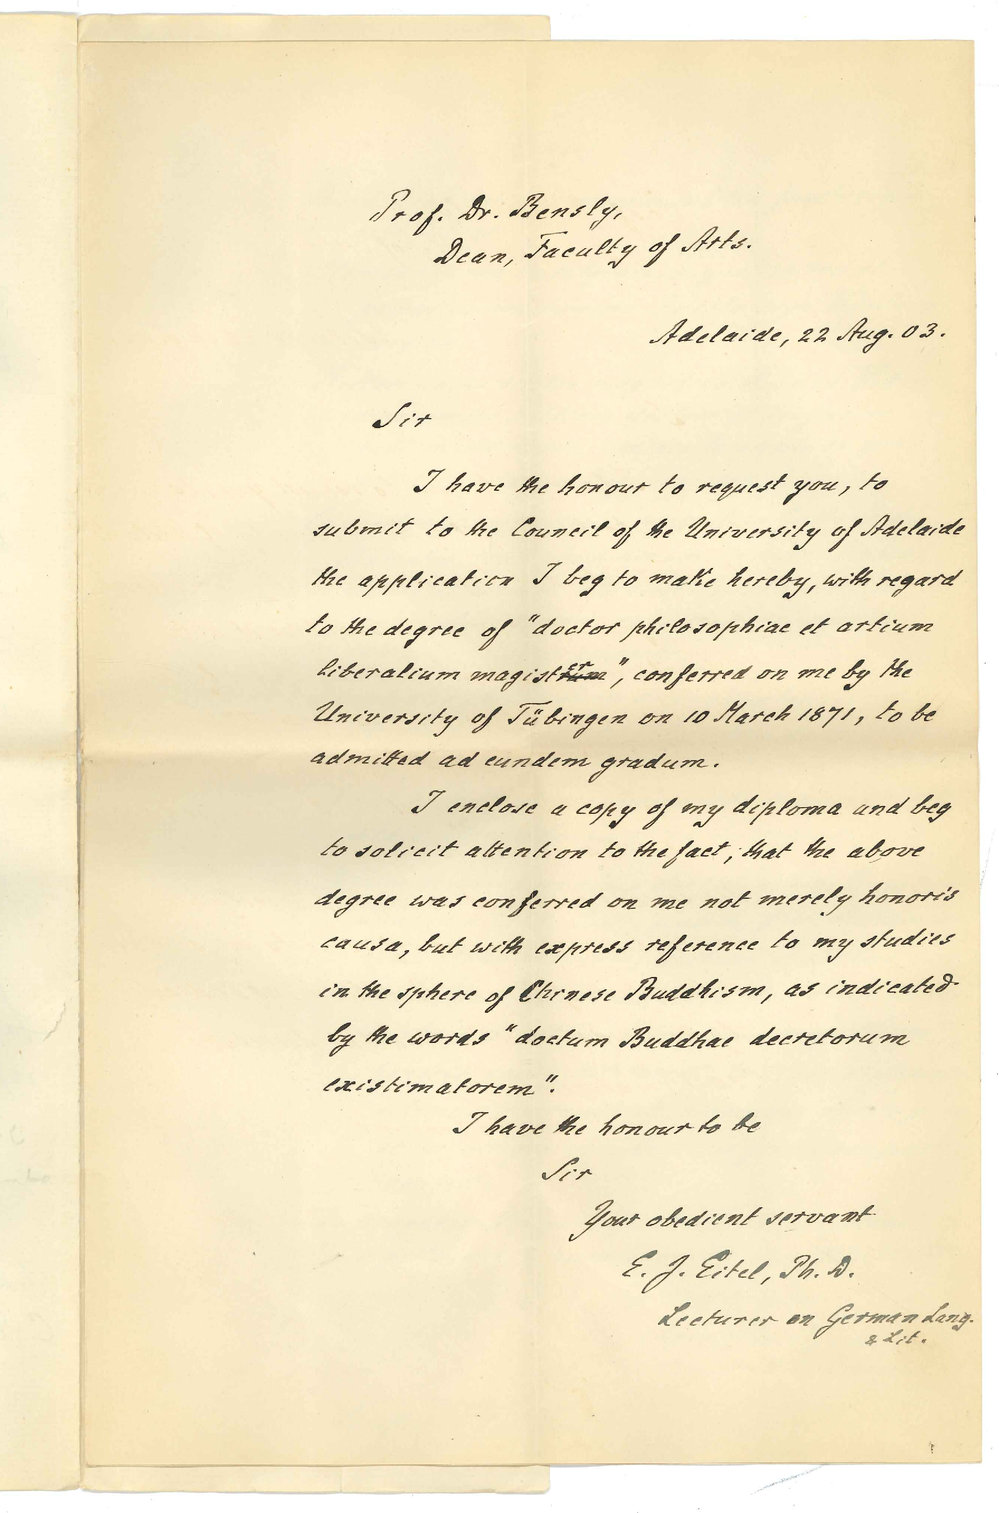 Prof. Dr. Bensly,
Dean, Faculty of Arts.
Adelaide, 22 Aug. 03.
Sir
I have the honour to request you, to
submit to the Council of the University of Adelaide
the application I beg to make hereby, with regard
to the degree of "doctor philosophiae et artium
liberalium magister", conferred on me by the
University of Tübingen on 10 March 1871, to be
admitted ad eundem gradum.
I enclose a copy of my diploma and beg
to solicit attention to the fact, that the above
degree was conferred on me not merely honoris
causa, but with express reference to my studies
in the sphere of Chinese Buddhism, as indicated
by the words "doctum Buddhae decretorum
existimatorem".
I have the honour to be
Sir
Your obedient servant
E. J. Eitel, Ph. D.
Lecturer on German Lang.
& Lit.